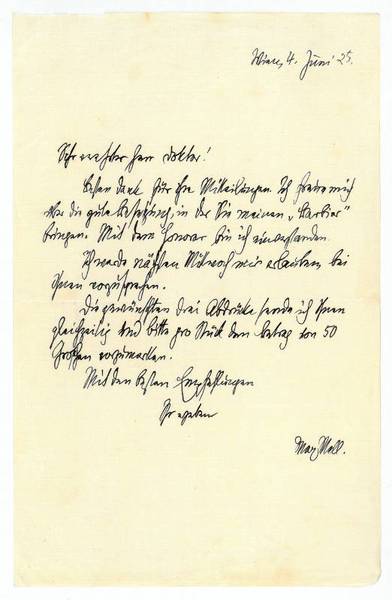 Wien, 4. Juni 25.
Sehr verehrter Herr Doktor!
Besten Dank für Ihre Mitteilungen. Ich freue mich
über die gute Besetzung, in der Sie meinen „Barbier"
bringen. Mit dem Honorar bin ich einverstanden.
Ich werde nächsten Mittwoch mir erlauben, bei
Ihnen vorzusprechen.
Die gewünschten drei Abdrucke sende ich Ihnen
gleichzeitig und bitte pro Stück den Betrag von 50
Groschen vorzumerken.
Mit den besten Empfehlungen
Ihr ergebener
Max Mell.